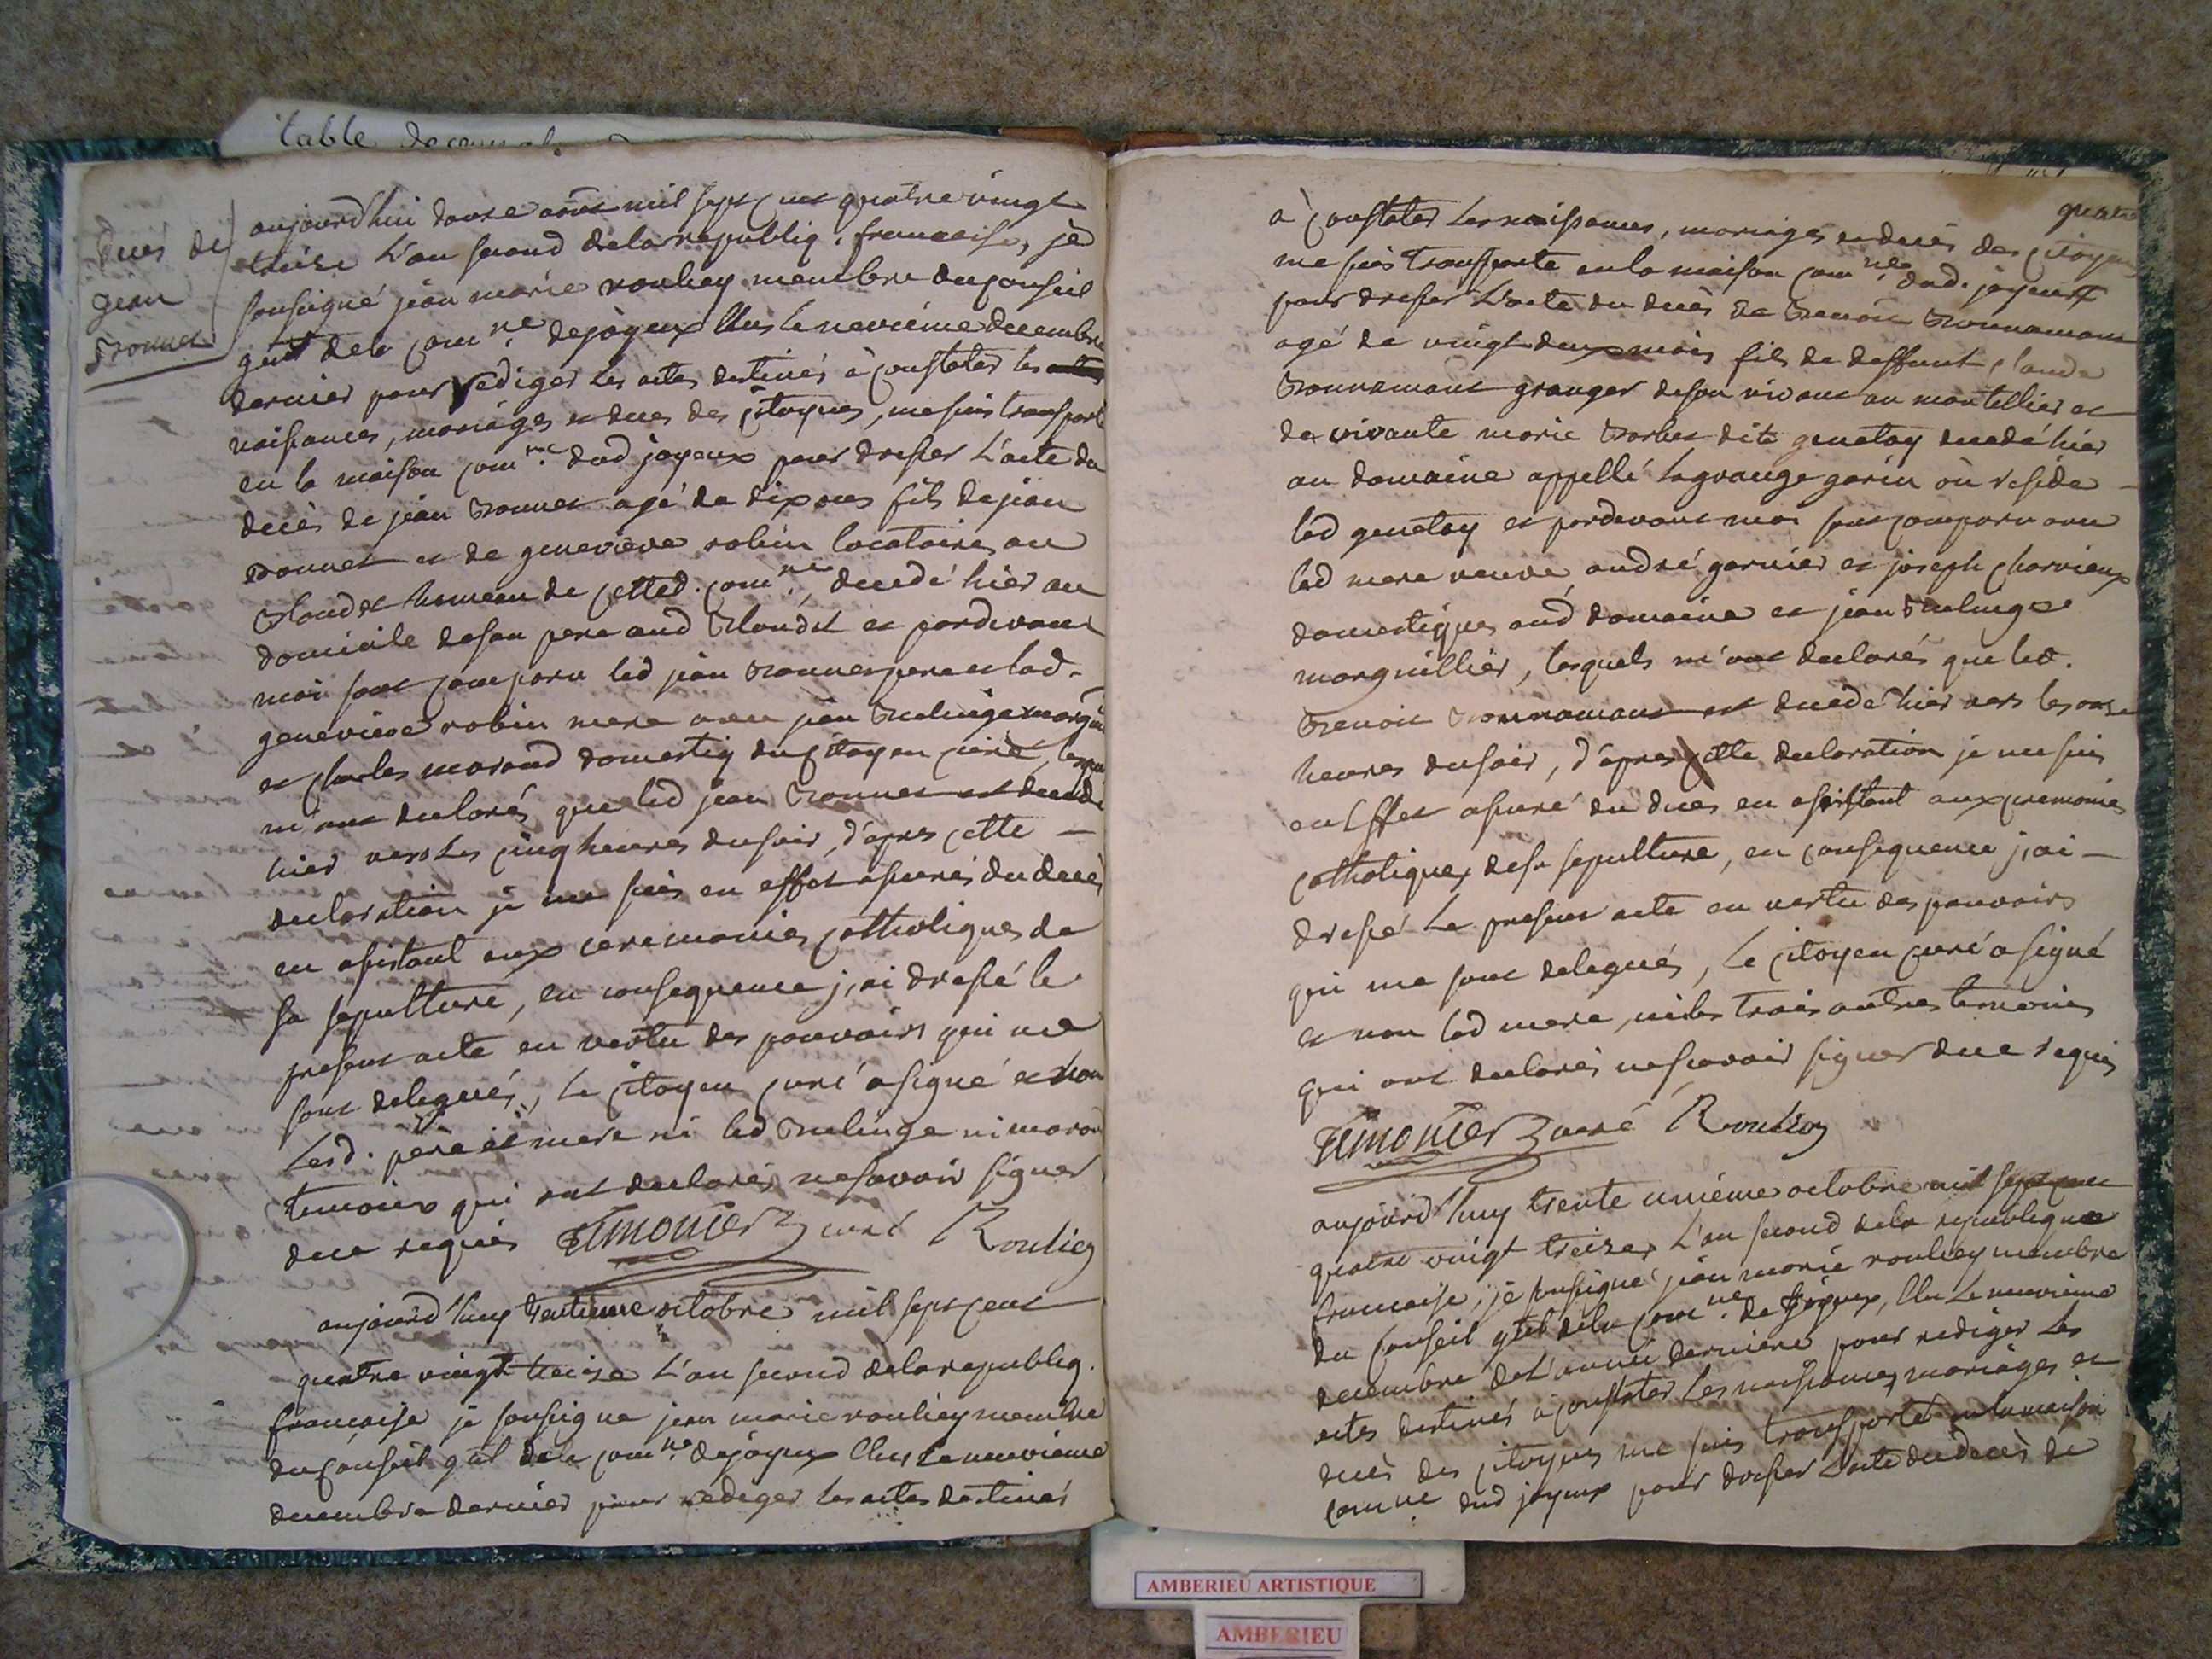 table
Deces de
jean
Bonnet
aujourd'hui douze aout mil sept cent quatre vingt
treize L'an second de la republiq. francaise, je
soussigné jean marie rouliey membre du conseil
gnal de la com.ne de joyeux Elus le neuvieme decembre
dernier pour rediger les actes destinés à constater les
naissances, mariages et deces des citoyens, me suis transporté
en la maison com.ne dud joyeux pour dresser L'acte du
decès de jean Bonnet agé de dix fils de jean
Bonnet et de genevieve robin locataires au
hameau de cetted. com.ne, decedé hier au
domicile de son pere aud et pardevant
moi sont comparu led jean Bonnet pere et lad.
genevieve robin mere avec jean
et charles morand domestiq du citoyen curé,
m'ont declarés que led jean Bonnet est decedé
hier vers les cinq heures du soir, d'apres cette
declaration je me suis en effet assuré du decès
en assistant aux ceremonies catholiques de
sa sepulture, en consequence j'ai dressé le
present acte en vertu des pouvoirs qui me
sont delegués, le citoyen curé a signé et non
Lesd. père et mere ni led ni morand
temoins qui ont declarés ne savoir signer
de ce requis Timonier curé Rouliey
aujourd'huy trentieme octobre mil sept cent
quatre vingt treize L'an second de la republiq.
francaise je soussigne jean marie rouliey membre
du conseil gnal de la com.ne de joyeux Elus le neuvieme
decembre dernier pour rediger les actes destinés
quatre
à constater les naissances, mariages et decès des citoyens
me suis transporté en la maison com.ne dud. joyeux
pour dresser L'acte du decès de Benoit Bonnamant
agé de vingt deux mois fils de deffunt claude
Bonnamant granger de son vivant au montellier et
de vivante marie dite genetoy decedé hier
au domaine appellé la grange garin où reside
lad genetoy et pardevant moi sont comparu avec
lad mere veuve, andré garnier et joseph charvieux
domestiques aud domaine et jean
marguillier, lesquels m'ont declarés que led.
Benoit Bonnamant est decedé hier vers les onze
heures du soir, d'apres cette declaration je me suis
en Effet assuré du deces en assistant aux ceremonies
catholiques de sa sepulture, en consequence j'ai
dressé le present acte en vertu des pouvoirs
qui me sont delegués, le citoyen curé a signé
et non lad mere, ni les trois autres temoins
qui ont declarés ne scavoir signer de ce requis
Timonier curé Rouliey
aujourd'huy trente unième octobre mil sept cent
quatre vingt treize, L'an second de la republique
francaise, je soussigné jean marie rouliey membre
du conseil gnal de la com.ne de joyeux, Elu le neuvieme
decembre de L'année derniere pour rediger les
actes destinés à constater les naissances, mariages et
decès des citoyens me suis transporté en la maison
com.ne dud joyeux pour dresser L'acte du decès de
AMBERIEU ARTISTIQUE
AMBERIEU